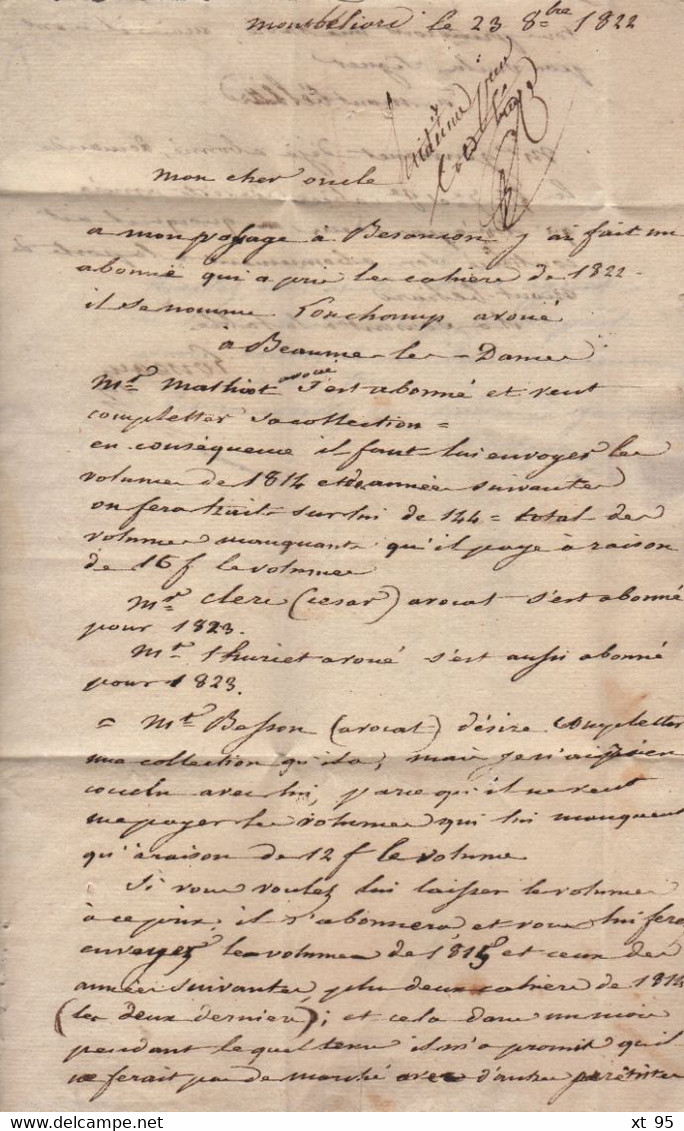 montbeliard le 23 8bre 1822
mon cher oncle
a mon passage a Besancon j'y ai fait un
abonné qui a pris les cahiers de 1822 -
il se nomme Lonchamp avoué
à Beaume-les-Dames
Mr. Mathiot avoué s'est abonné et veut
completter sa collection =
en conséquence il faut lui envoyer les
volumes de 1814 et des années suivantes
on fera trait sur lui de 144 = total des
volumes manquants qu'il paye à raison
de 16 f le volume
Mr. Clerc (cesar) avocat s'est abonné
pour 1823.
Mr. Thuriet avoué s'est aussi abonné
pour 1823.
= Mr. Besson (avocat) désire completter
une collection qu'il a, mais je n'ai rien
conclu avec lui, parce qu'il ne veut
me payer les volumes qui lui manquent
qu'à raison de 12 f le volume
Si vous voulez lui laisser le volume
à ce prix, il s'abonnera et vous lui ferez
envoyer les volumes de 1815 et ceux des
années suivantes, plus deux cahiers de 1814
(les deux derniers); et cela dans un mois
pendant lequel tems il m'a promit qu'il
ne ferait pas de marché avec d'autres
xt 95